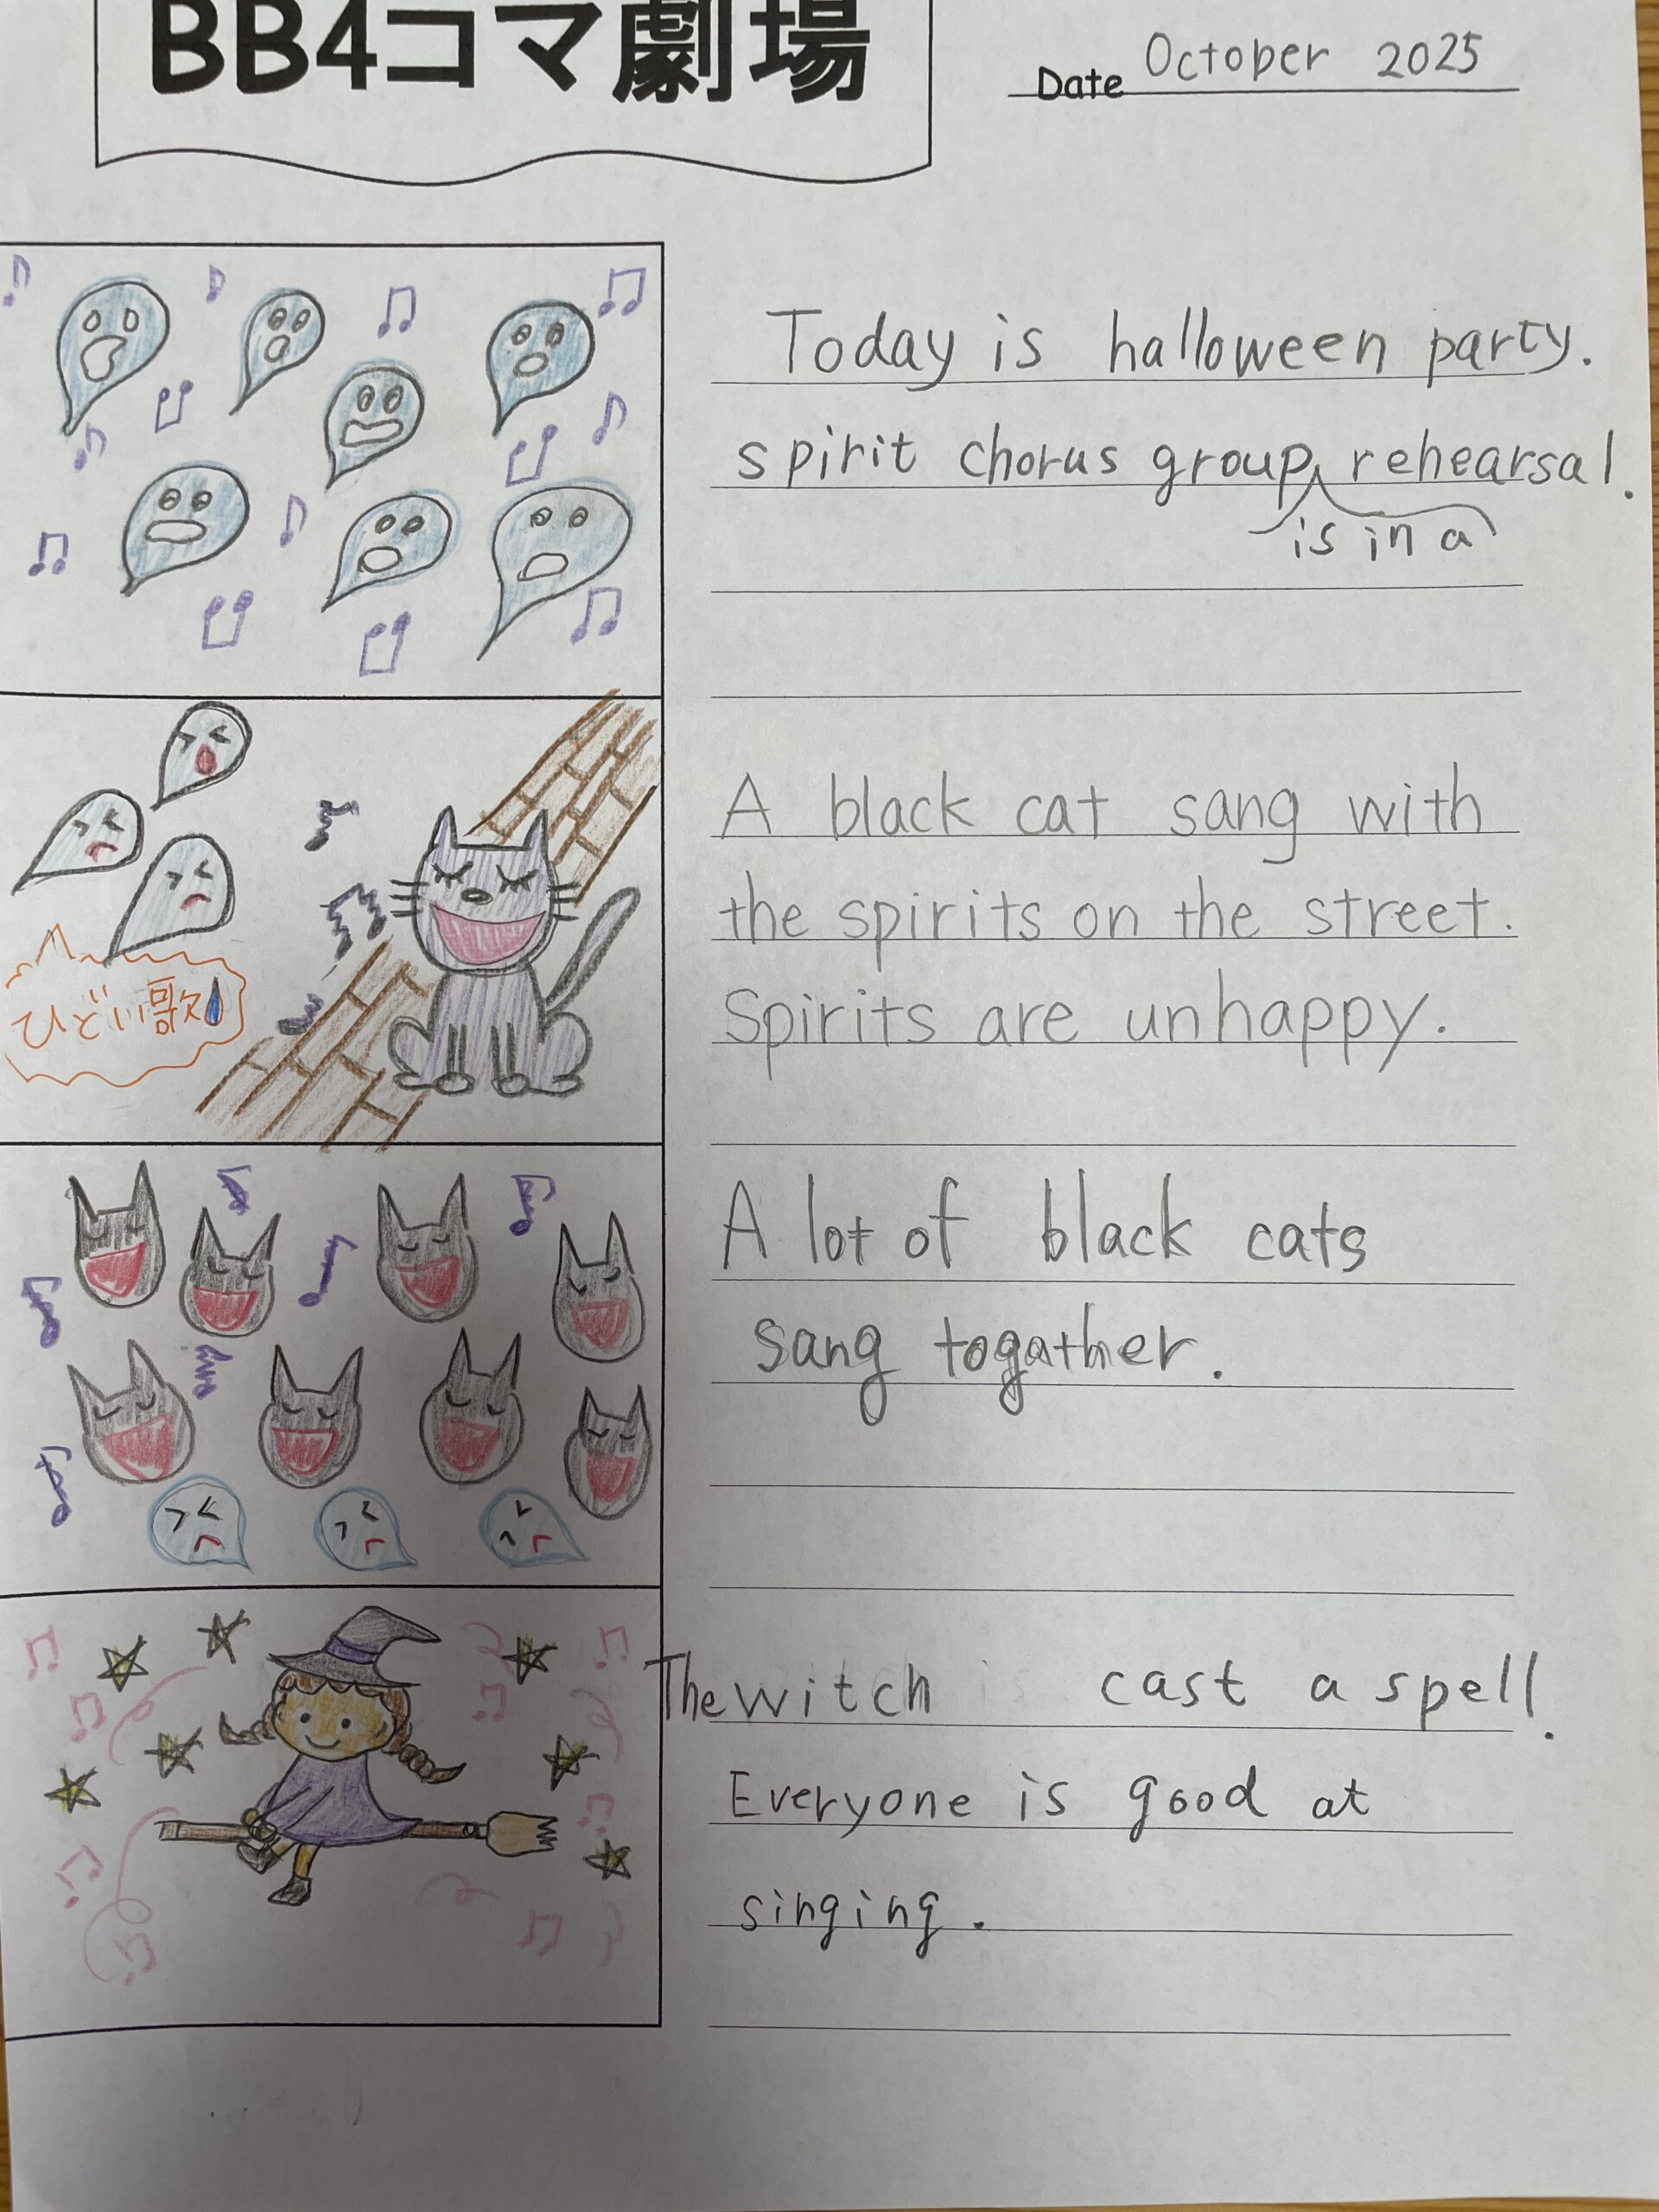 BB4コマ劇場
Date October 2025
Today is halloween party.
spirit chorus group rehearsal.
is in a
ひどい歌
A black cat sang with
the spirits on the street.
Spirits are unhappy.
A lot of black cats
sang togather.
The witch cast a spell.
Everyone is good at
singing.